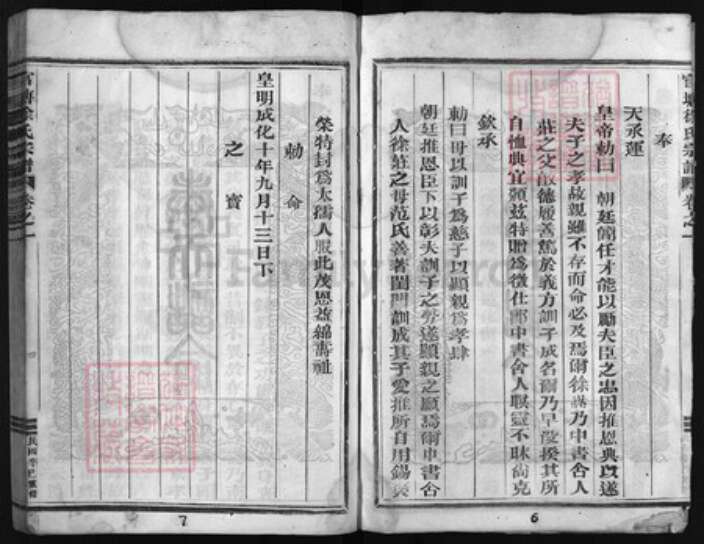 奉
天承運
皇帝勅曰 朝廷簡任才能以勵夫臣之忠因推恩典以遂
夫子之孝故親雖不存而命必及焉爾徐 乃中書舍人
莊之父 德履善篤於義方訓子成名爾乃早 揆其所
自恤典宜頒茲特贈為徵仕郎中書舍人 靈不昧尚克
欽承
勅曰母以訓子為慈子以顯親為孝肆
朝廷推恩臣下以彰夫訓子之勞遂顯親之願焉爾中書舍
人徐莊之母范氏善著閨門訓成其子愛推所自用錫
榮特封為太孺人服此茂恩益綿壽祉
勅 命
皇明成化十年九月十三日下
之 寶
徐氏宗譜 卷之一
7
6